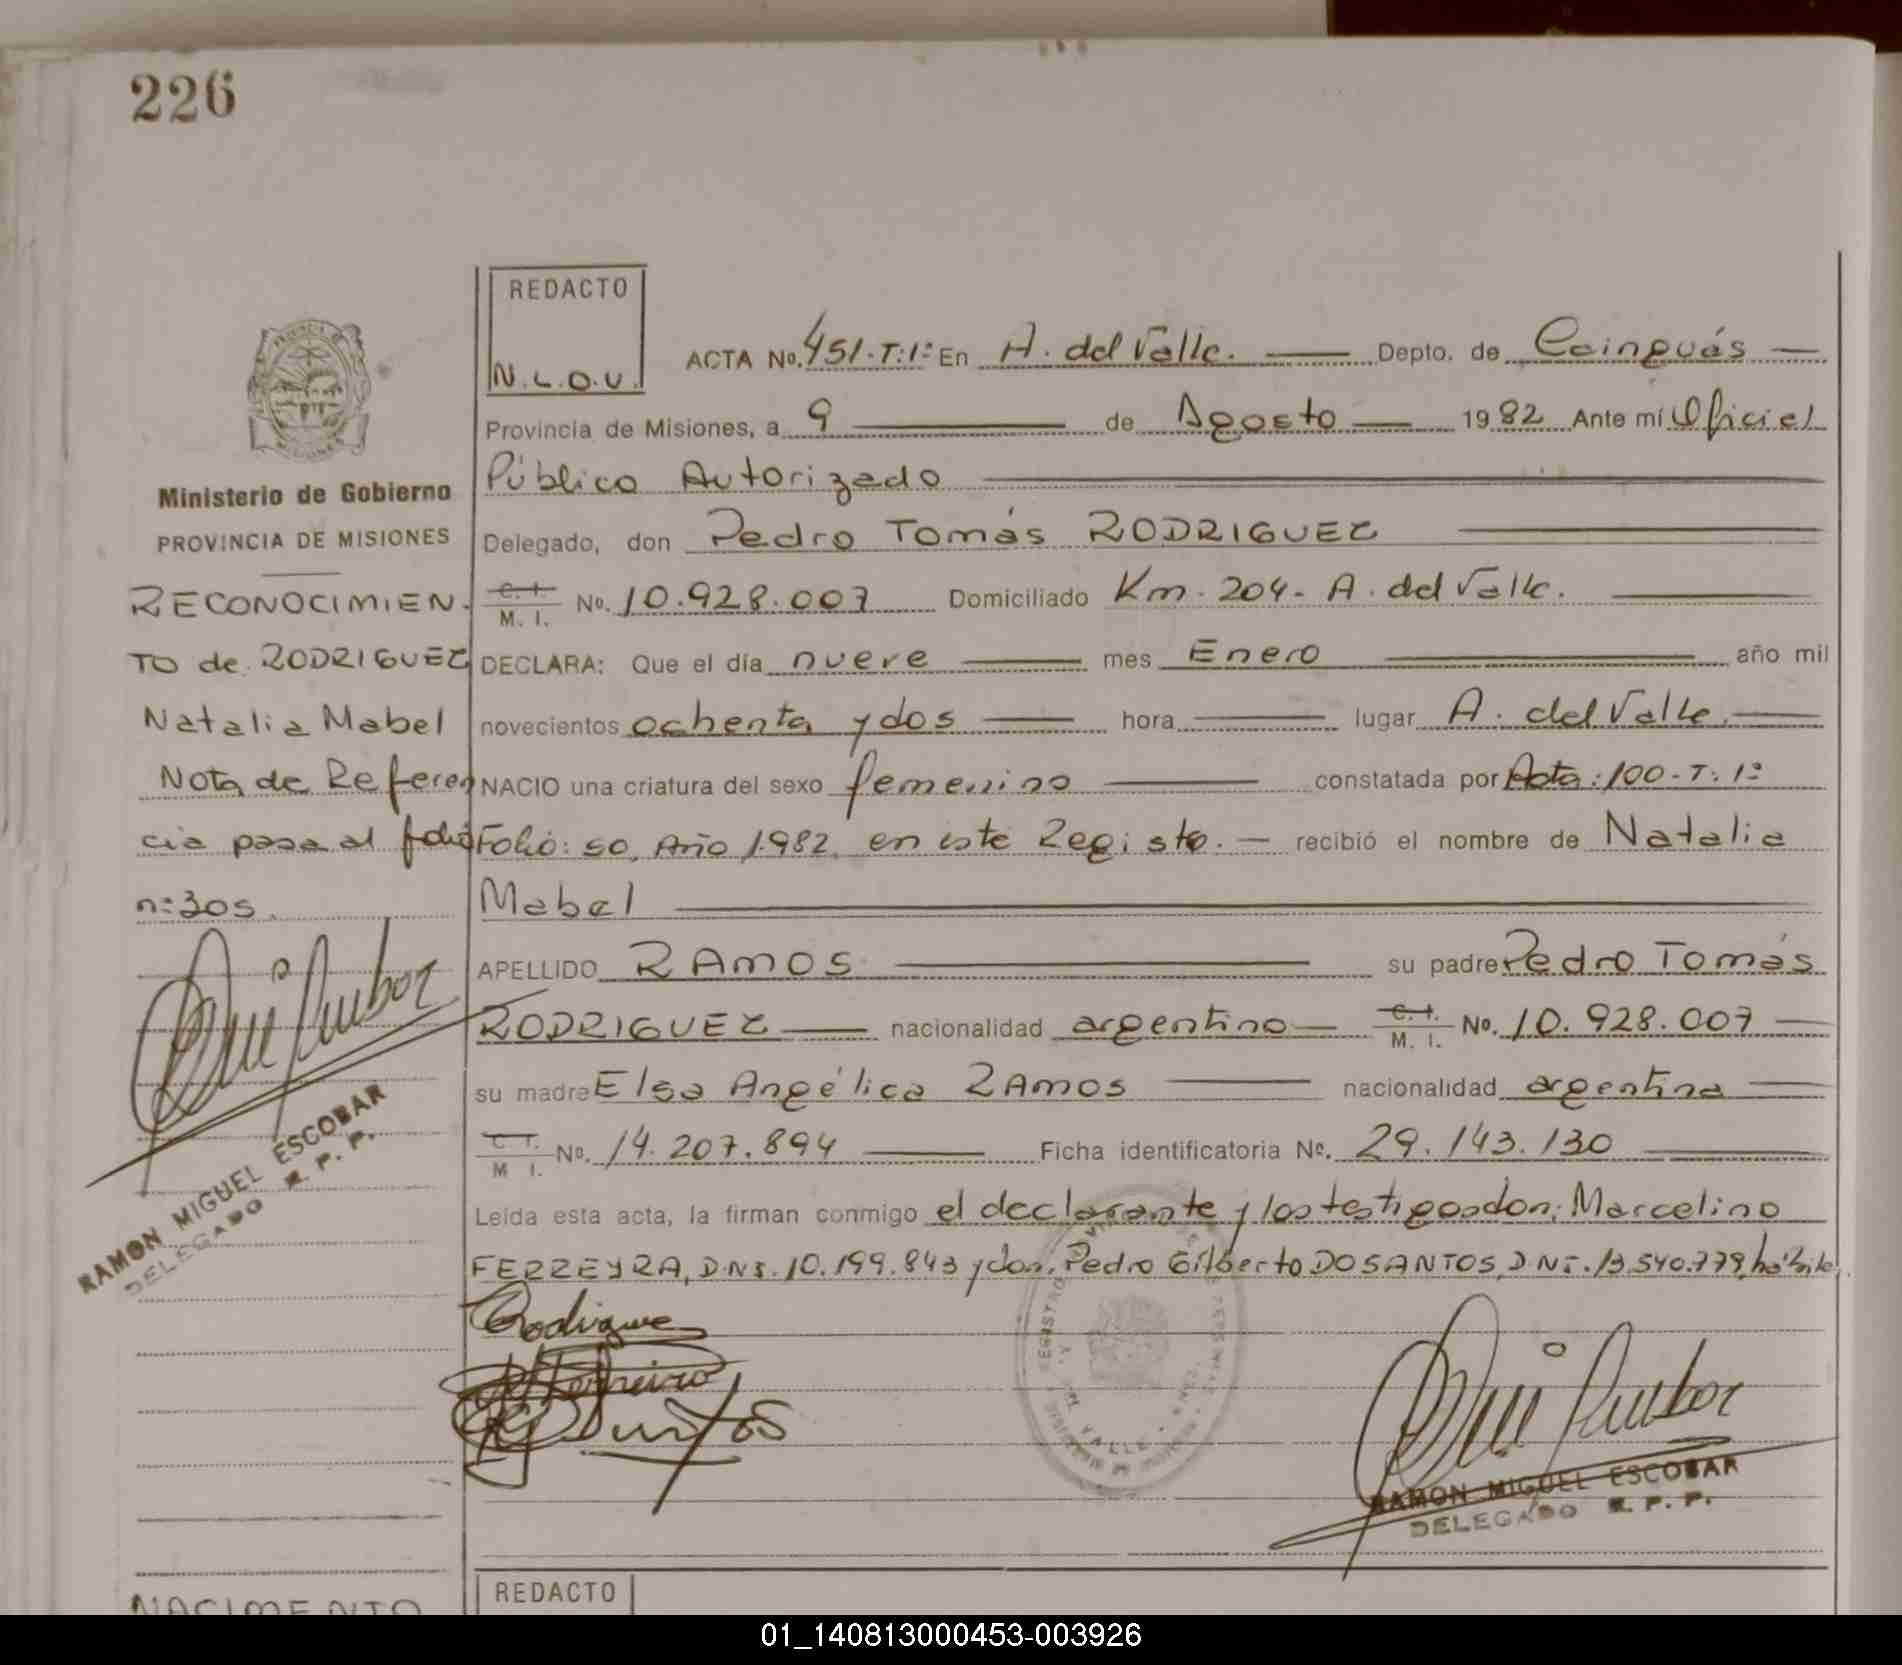 226
REDACTO
N.L.O.V.
ACTA No. 451.T:1º En A. del Valle. Depto. de Cainguás
Provincia de Misiones, a 9 de Agosto 1982 Ante mí Oficial
Público Autorizado
Delegado, don Pedro Tomás RODRIGUEZ
C. I. M. I. No. 10.928.007 Domiciliado Km. 204- A. del Valle.
DECLARA: Que el día nueve mes Enero año mil
novecientos ochenta y dos hora lugar A. del Valle.
NACIO una criatura del sexo femenino constatada por Acta: 100-T: 1º
Folio: 50, Año 1.982, en este Registo. recibió el nombre de Natalia
Mabel
APELLIDO RAMOS su padre Pedro Tomás
RODRIGUEZ nacionalidad argentino C. I. M. I. No. 10.928.007
su madre Elsa Angélica RAMOS nacionalidad argentina
C. I. M. I. No. 14.207.894 Ficha identificatoria No. 29.143.130
Leída esta acta, la firman conmigo el declarante y los testigos don: Marcelino
FERREYRA, D.N.I. 10.199.843 y don. Pedro Gilberto DOSANTOS, D.N.I. 13.540.779, hábile
Rodrigue
RAMON MIGUEL ESCOBAR
DELEGADO R. P. P.
PROVINCIA DE MISIONES
Ministerio de Gobierno
PROVINCIA DE MISIONES
RECONOCIMIEN-
TO de RODRIGUEZ
Natalia Mabel
Nota de Referen
cia pasa al folio
n:305.
RAMON MIGUEL ESCOBAR
DELEGADO R. P. P.
NACIMIENTO
REDACTO
01_140813000453-003926